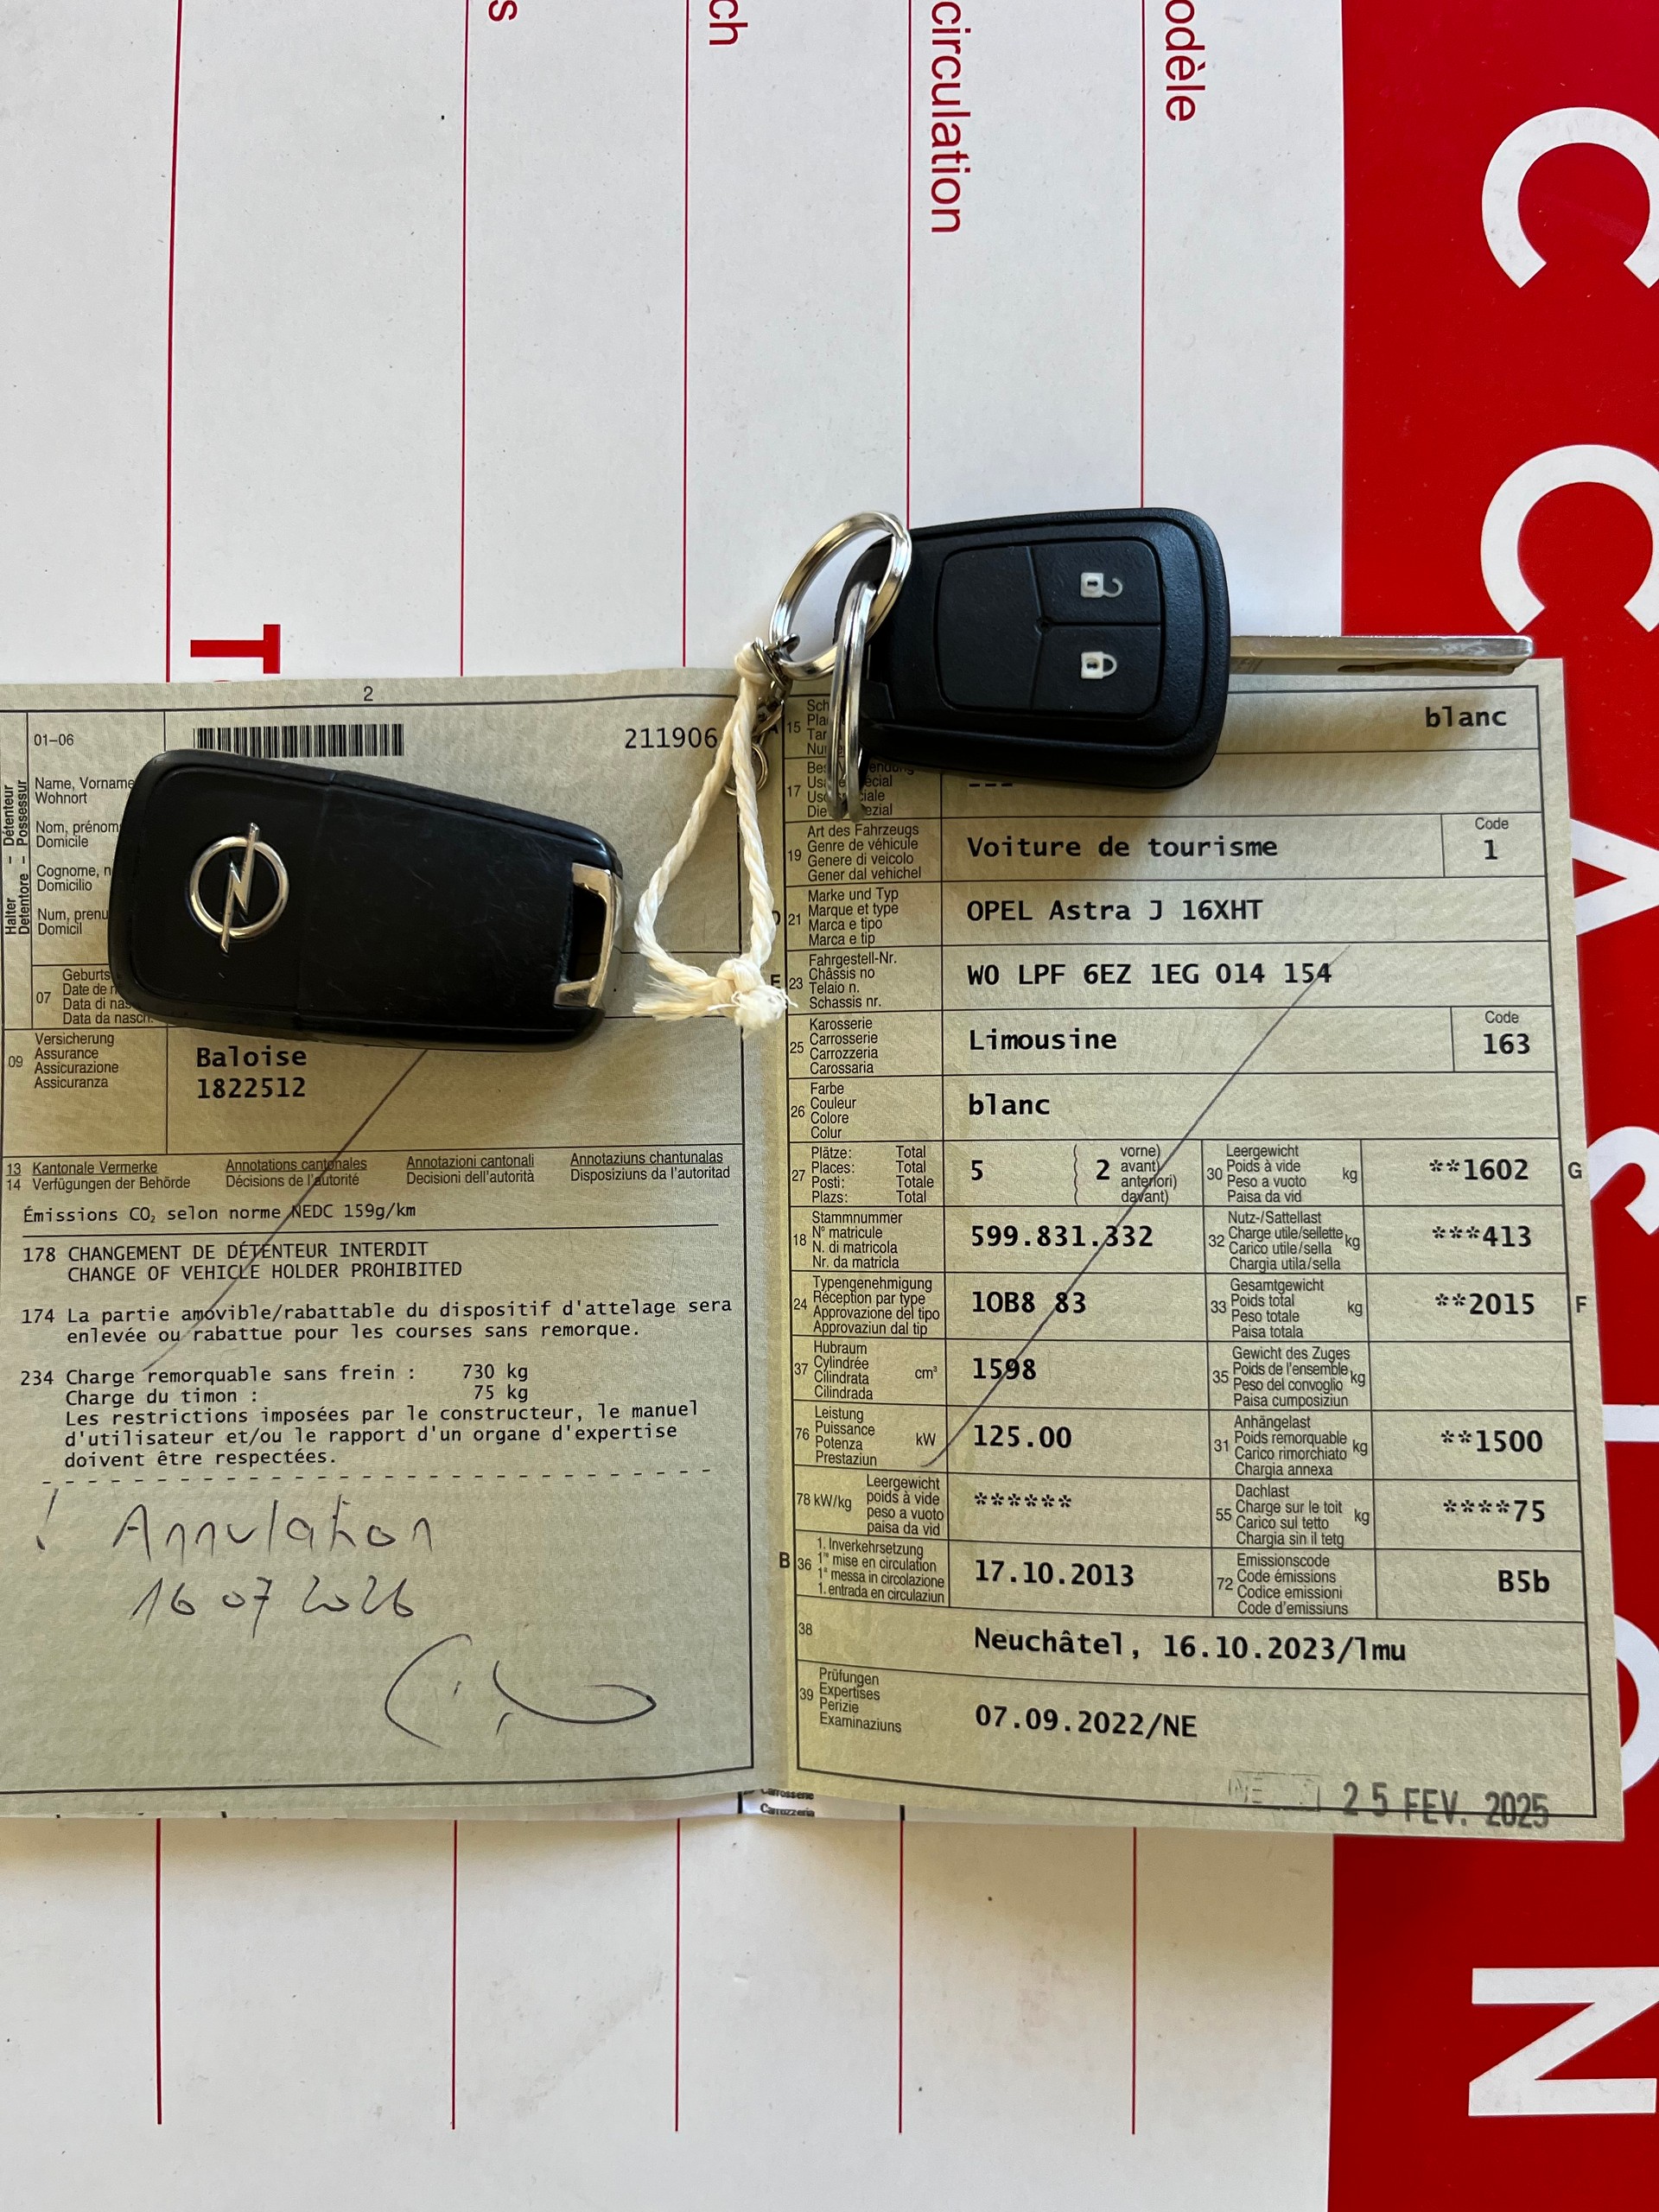 odèle
circulation
ch
s
OCCASION
2
01–06
211906
Halter – Détenteur
Detentore – Possessur
Name, Vorname
Wohnort
Nom, prénom
Domicile
Cognome, n
Domicilio
Num, prenu
Domicil
07
Geburts
Date de n
Data di nas
Data da nasch.
09
Versicherung
Assurance
Assicurazione
Assicuranza
Baloise
1822512
13 Kantonale Vermerke Annotations cantonales Annotazioni cantonali Annotaziuns chantunalas
14 Verfügungen der Behörde Décisions de l'autorité Decisioni dell'autorità Disposiziuns da l'autoritad
Émissions CO₂ selon norme NEDC 159g/km
178 CHANGEMENT DE DÉTENTEUR INTERDIT
CHANGE OF VEHICLE HOLDER PROHIBITED
174 La partie amovible/rabattable du dispositif d'attelage sera
enlevée ou rabattue pour les courses sans remorque.
234 Charge remorquable sans frein : 730 kg
Charge du timon : 75 kg
Les restrictions imposées par le constructeur, le manuel
d'utilisateur et/ou le rapport d'un organe d'expertise
doivent être respectées.
! Annulation
16 07 2026
15
blanc
17
---
19
Art des Fahrzeugs
Genre de véhicule
Genere di veicolo
Gener dal vehichel
Voiture de tourisme
Code
1
21
Marke und Typ
Marque et type
Marca e tipo
Marca e tip
OPEL Astra J 16XHT
E 23
Fahrgestell-Nr.
Châssis no
Telaio n.
Schassis nr.
W0 LPF 6EZ 1EG 014 154
25
Karosserie
Carrosserie
Carrozzeria
Carossaria
Limousine
Code
163
26
Farbe
Couleur
Colore
Colur
blanc
27
Plätze: Total
Places: Total
Posti: Totale
Plazs: Total
5
2
vorne)
avant)
anteriori)
davant)
30
Leergewicht
Poids à vide
Peso a vuoto
Paisa da vid
kg
**1602
G
18
Stammnummer
N° matricule
N. di matricola
Nr. da matricla
599.831.332
32
Nutz-/Sattellast
Charge utile/sellette
Carico utile/sella
Chargia utila/sella
kg
***413
24
Typengenehmigung
Réception par type
Approvazione del tipo
Approvaziun dal tip
1OB8 83
33
Gesamtgewicht
Poids total
Peso totale
Paisa totala
kg
**2015
F
37
Hubraum
Cylindrée
Cilindrata
Cilindrada
cm³
1598
35
Gewicht des Zuges
Poids de l'ensemble
Peso del convoglio
Paisa cumposiziun
kg
76
Leistung
Puissance
Potenza
Prestaziun
kW
125.00
31
Anhängelast
Poids remorquable
Carico rimorchiato
Chargia annexa
kg
**1500
78 kW/kg
Leergewicht
poids à vide
peso a vuoto
paisa da vid
******
55
Dachlast
Charge sur le toit
Carico sul tetto
Chargia sin il tetg
kg
****75
B 36
1. Inverkehrsetzung
1re mise en circulation
1a messa in circolazione
1. entrada en circulaziun
17.10.2013
72
Emissionscode
Code émissions
Codice emissioni
Code d'emissiuns
B5b
38
Neuchâtel, 16.10.2023/lmu
39
Prüfungen
Expertises
Perizie
Examinaziuns
07.09.2022/NE
25 FEV. 2025
Carrosserie
Carrozzeria